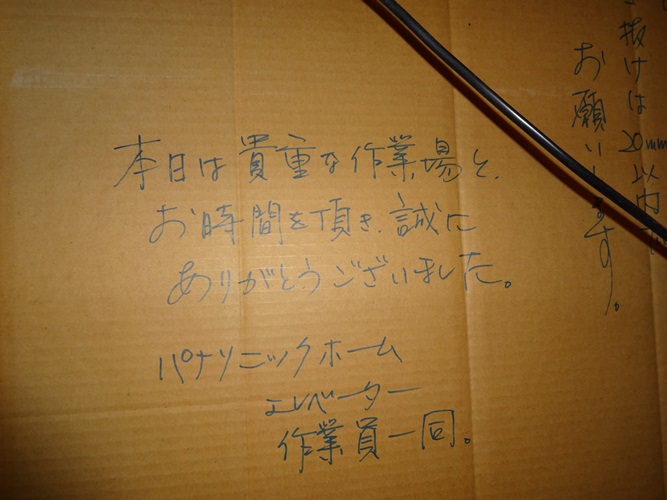 本日は貴重な作業場と、
お時間を頂き、誠に
ありがとうございました。
パナソニックホーム
エレベーター
作業員一同。
抜けは20mm以内で
お願いします。